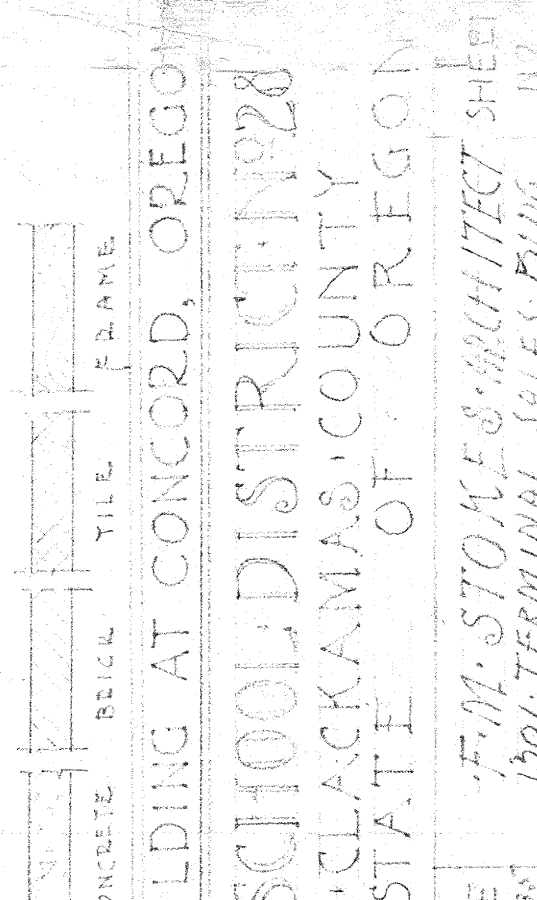 ONCRETE BRICK TILE FRAME
LDING AT CONCORD, OREGON
SCHOOL DISTRICT Nº 28
·CLACKAMAS·COUNTY
STATE OF OREGON
·F.M. STOKES·ARCHITECT SHEET
1301·TERMINAL SALES·BLDG.